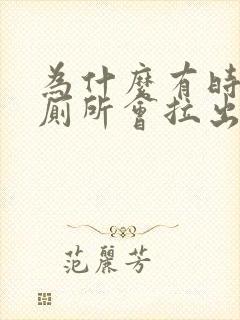 為什麼有時
廁所會拉出
范麗芳